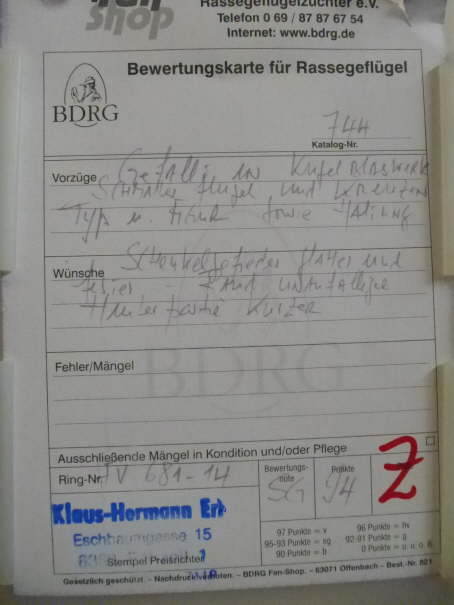 Fan
Shop
Rassegeflügelzüchter e.V.
Telefon 0 69 / 87 87 67 54
Internet: www.bdrg.de
BDRG
Bewertungskarte für Rassegeflügel
744
Katalog-Nr.
Vorzüge
Schmaler Flügel und
Typ u. Figur sowie Haltung
Wünsche Schenkelgefieder glatter und
Hinterpartie Kürzer
Fehler/Mängel
BDRG
Ausschließende Mängel in Kondition und/oder Pflege
Ring-Nr. V 681-14
Bewertungs-
note
SG
Punkte
94
Z
Klaus-Hermann Erb
Eschbaumgasse 15
Stempel Preisrichter
97 Punkte = v
96 Punkte = hv
95-93 Punkte = sg
92-91 Punkte = g
90 Punkte = b
0 Punkte = u. o. B.
Gesetzlich geschützt – Nachdruck verboten. – BDRG Fan-Shop. – 63071 Offenbach – Best.-Nr. 821